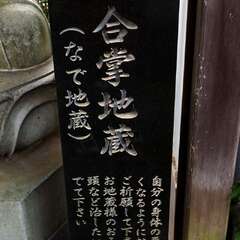 合掌地蔵
(なで地蔵)
自分の身体の
くなるように
ご祈願して下
お地蔵様のお
頭など治した
でて下さい